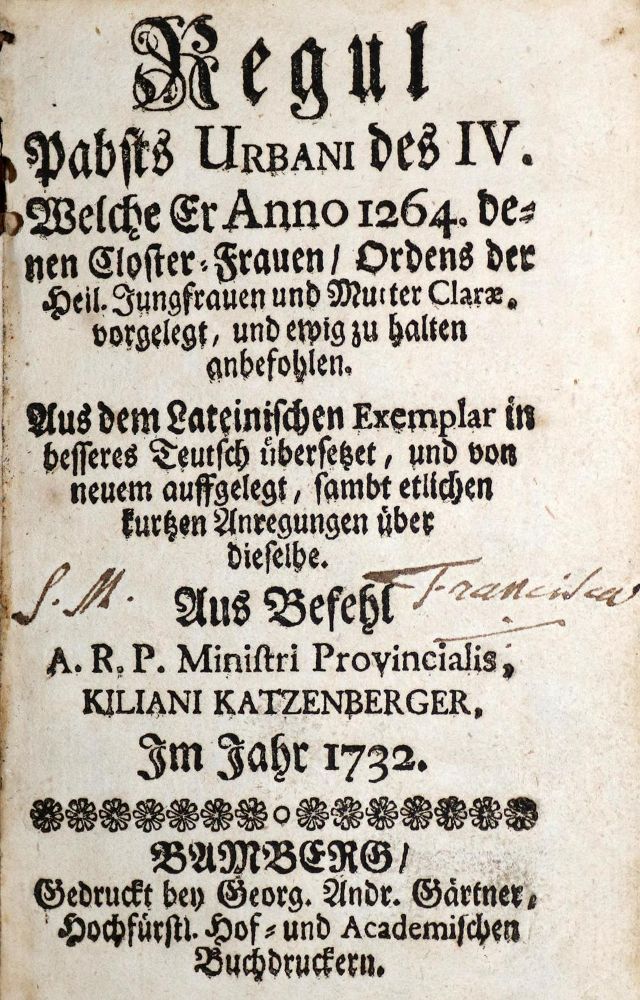 Regul
Pabsts URBANI des IV.
Welche Er Anno 1264. de⸗
nen Closter⸗Frauen/ Ordens der
Heil. Jungfrauen und Mutter Claræ.
vorgelegt, und ewig zu halten
anbefohlen.
Aus dem Lateinischen Exemplar in
besseres Teutsch übersetzet, und von
neuem auffgelegt, sambt etlichen
kurtzen Anregungen über
dieselbe.
S. M. Francisca
Aus Befehl
A. R. P. Ministri Provincialis,
KILIANI KATZENBERGER,
Im Jahr 1732.
BAMBERG/
Gedruckt bey Georg. Andr. Gärtner,
Hochfürstl. Hof⸗ und Academischen
Buchdruckern.